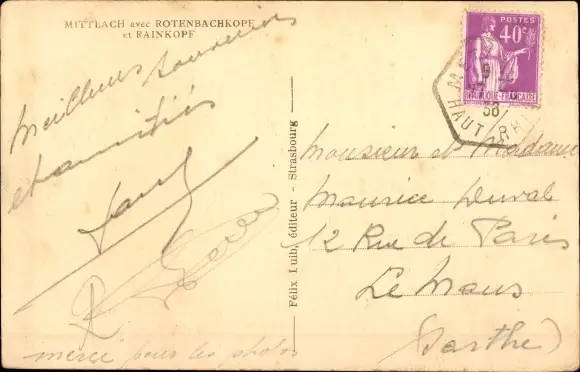 MITTLACH avec ROTENBACHKOPF
et RAINKOPF
Meilleurs souvenirs
et amitiés
merci pour les photos
Félix Luib, éditeur - Strasbourg
POSTES
40c
REPUBLIQUE-FRANÇAISE
HAUT RHIN
Monsieur et Madame
Maurice Duval
12 Rue de Paris
Le Mans
(Sarthe)